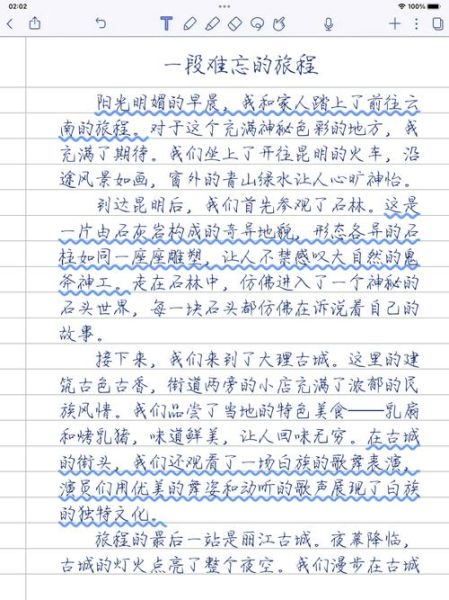 02:02
100%
一段难忘的旅程
阳光明媚的早晨，我和家人踏上了前往云
南的旅程。对于这个充满神秘色彩的地方，我
充满了期待。我们坐上了开往昆明的火车，沿
途风景如画，窗外的青山绿水让人心旷神怡。
到达昆明后，我们首先参观了石林。这是
一片由石灰岩构成的奇异地貌，形态各异的石
柱如同一座座雕塑，让人不禁感叹大自然的鬼
斧神工。走在石林中，仿佛进入了一个神秘的
石头世界，每一块石头都仿佛在诉说着自己的
故事。
接下来，我们来到了大理古城。这里的建
筑古色古香，街道两旁的小店充满了浓郁的民
族风情。我们品尝了当地的特色美食——乳扇
和烤乳猪，味道鲜美，让人回味无穷。在古城
的街头，我们还观看了一场白族的歌舞表演，
演员们用优美的舞姿和动听的歌声展现了白族
的独特文化。
旅程的最后一站是丽江古城。夜幕降临，
古城的灯火点亮了整个夜空。我们漫步在古城